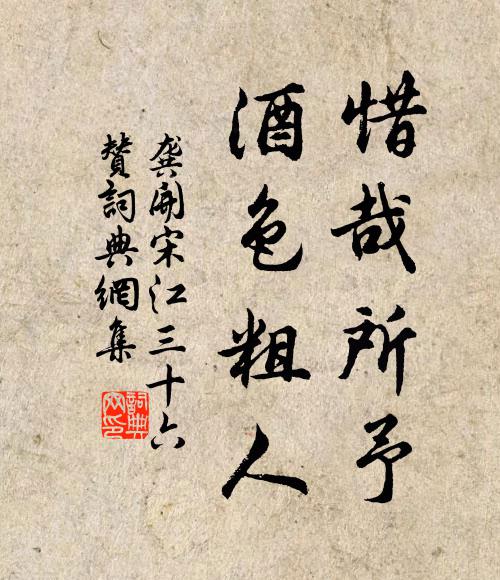 惜哉所予
酒色粗人
龚開宋江三十六
贊詞典網集
詞典
网印